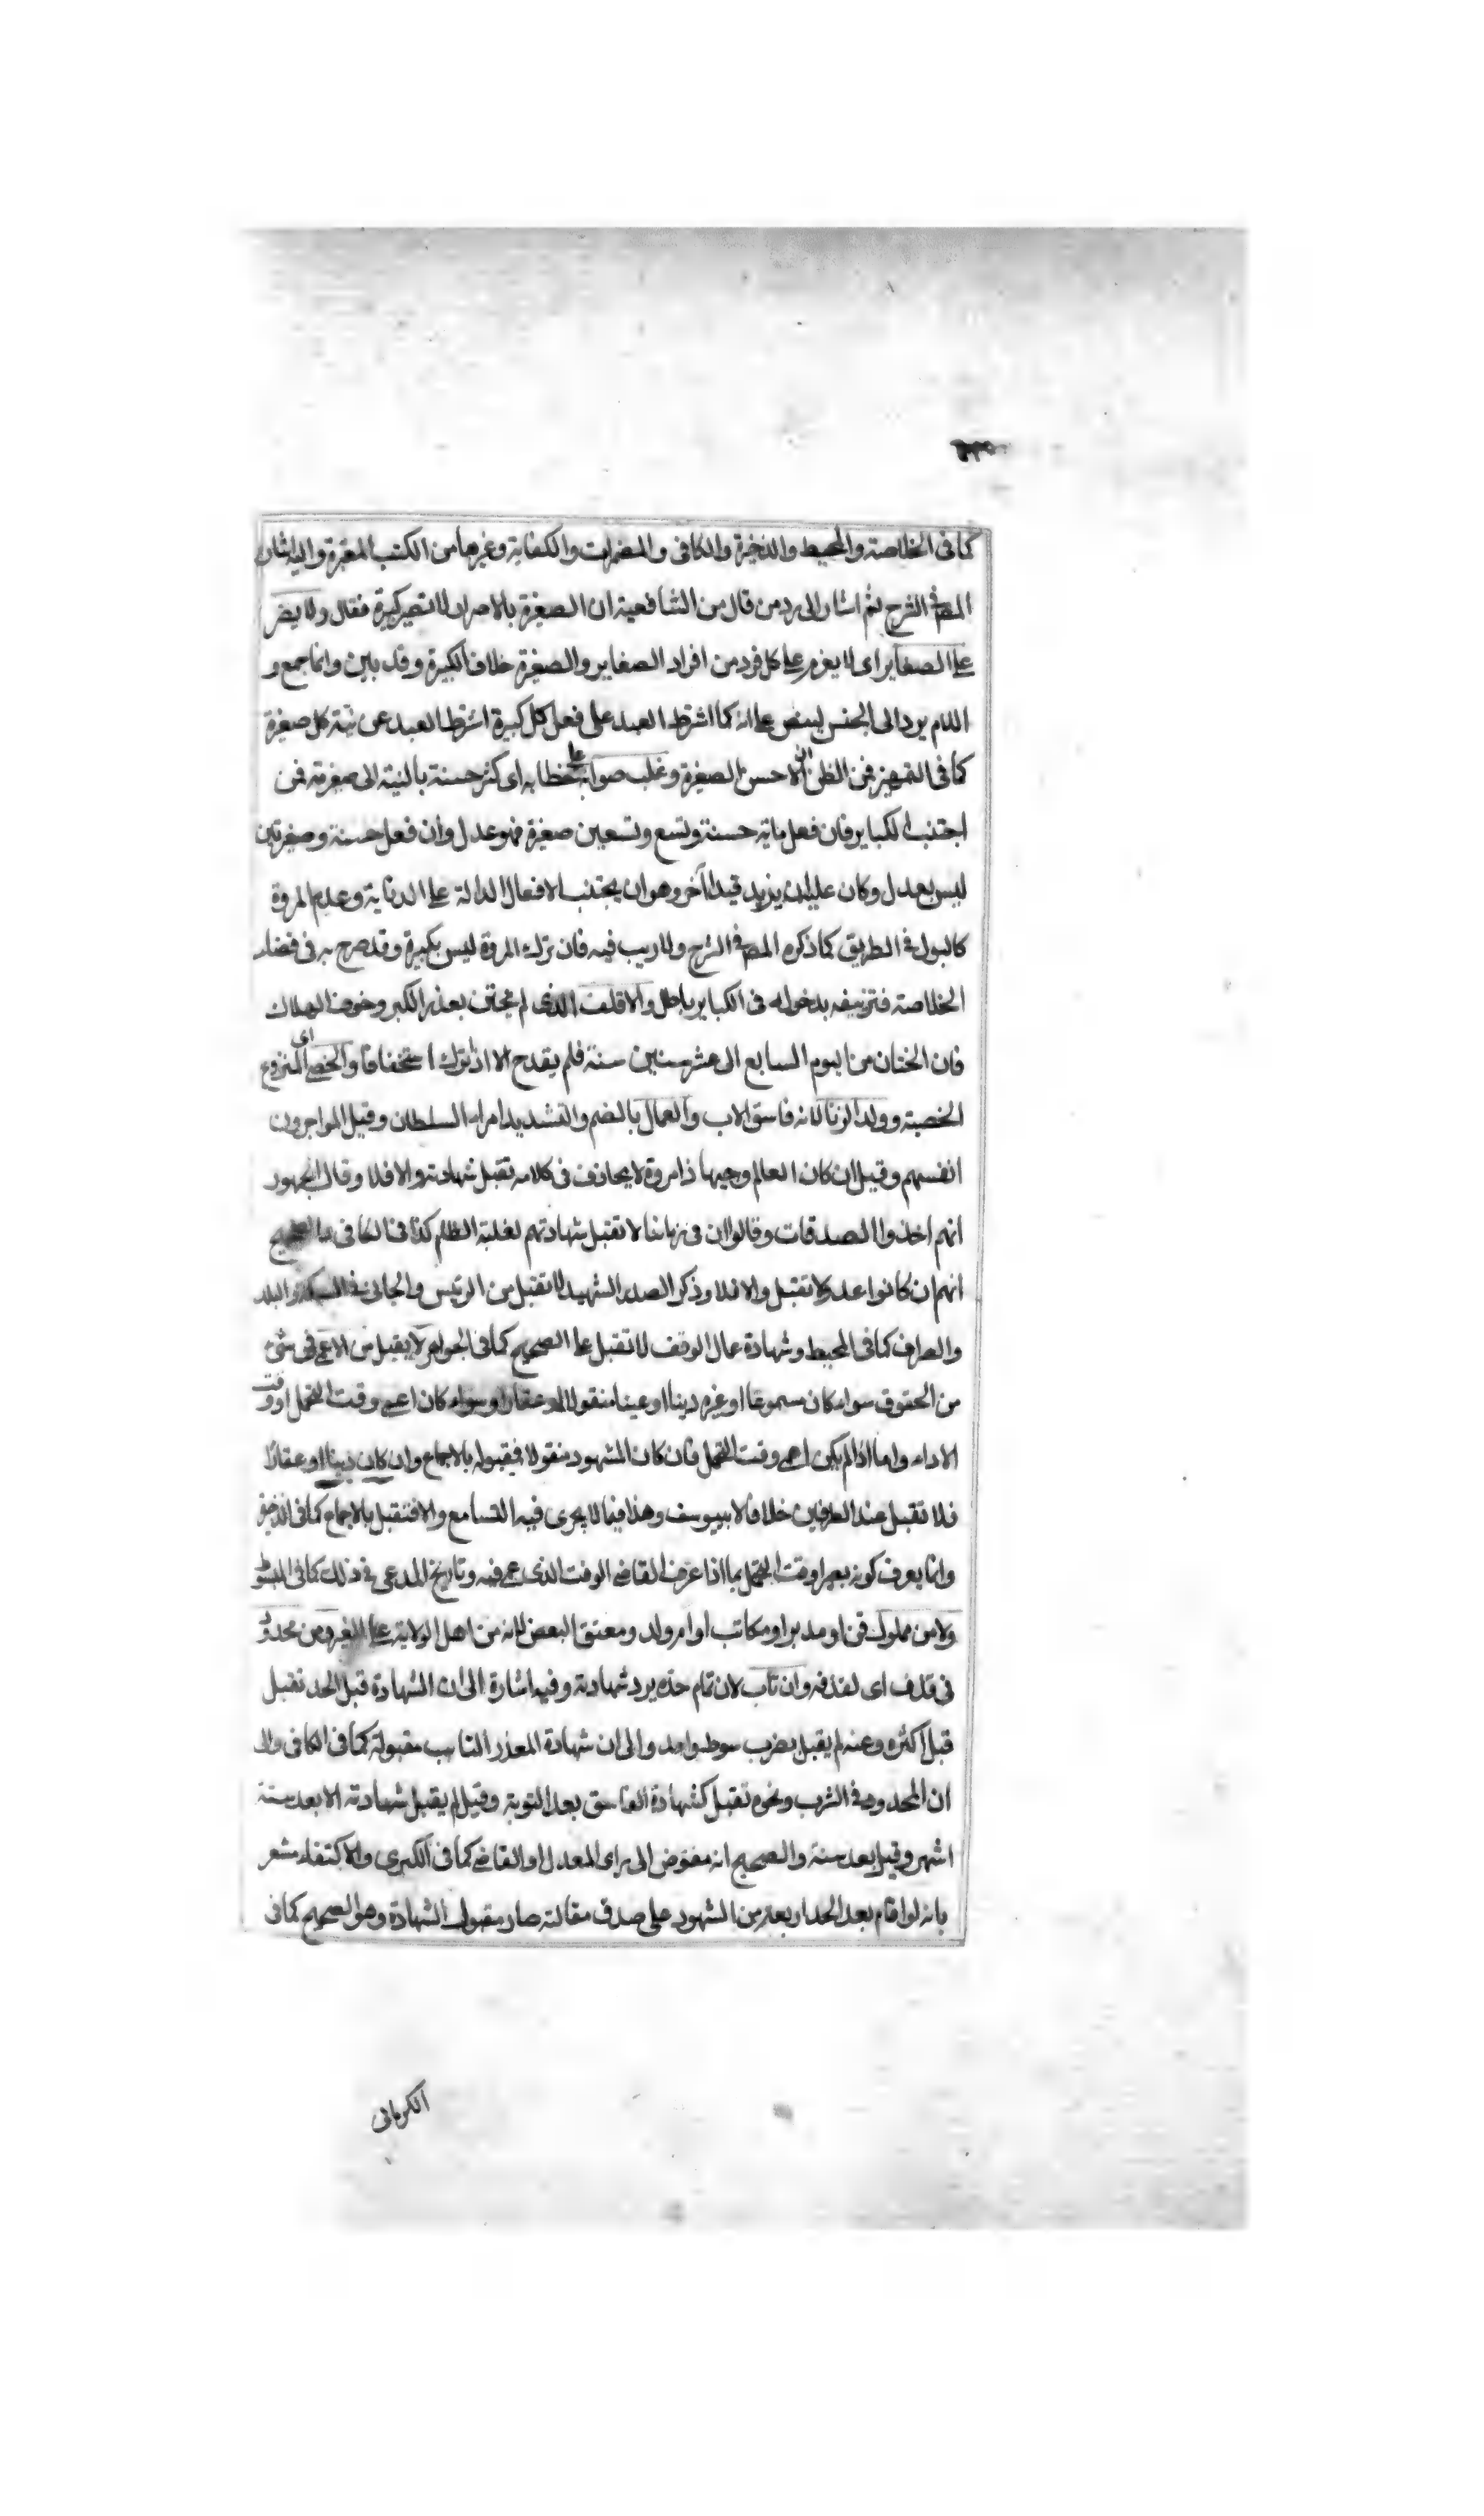 كما فى الخلاصة والمحيط والذخيرة والكافى والمضمرات والكفاية وغيرها من الكتب المعتبرة واليه اشار
المص فى الشرح ثم اشار الى رد من قال من الشافعية ان الصغيرة بالاصرار لا تصير كبيرة فقال ولا يصر
على الصغاير اى لا يعزم على كل فرد من افراد الصغاير والصغيرة خلاف الكبيرة وقد بين وانما جمع و
اللام يرد الى الجنس لينص على انه كما اشترط العبد على فعل كل كبيرة اشترط العبد عن نية كل صغيرة
كما فى التمهيد فمن الظن ان الاحسن الصغيرة وغلب صوابه على خطايه اى كثر حسنة بالنسبة الى صغيرته فمن
اجتنب الكباير فان فعل ماية حسنة وتسع وتسعين صغيرة فهو عدل وان فعل حسنة وصغيرتين
ليس بعدل وكان عليه ان يزيد قيدا آخر وهو ان يجتنب الافعال الدالة على الدناية وعدم المروة
كالبول فى الطريق كما ذكره المص فى الشرح ولا ريب فيه فان ترك المروة ليس بكبيرة وقد صرح به فى قضاء
الخلاصة فتزييفه بدخوله فى الكباير باطل والاقلف الذى لم يختتن بعذر الكبر وخوف الهلاك
فان الختان من اليوم السابع الى عشر سنين سنة فلم يقدح الا اذا ترك استخفافا والخصى اى المنزوع
الخصية وولد الزنا لانه فاسق الاب والعمال بالضم والتشديد امراء السلطان وقيل المواجرون
انفسهم وقيل ان كان العالم وجيها ذا مروة لا يجازف فى كلامه تقبل شهادته والا فلا وقال الجمهور
انهم اخذوا الصدقات وقالوا ان فى زماننا لا تقبل شهادتهم لغلبة الظلم كذا فى الكافى والصحيح
انهم ان كانوا عدولا تقبل والا فلا وذكر الصدر الشهيد لا تقبل من الرئيس والجابى فى السكة والبلد
والصراف كما فى المحيط وشهادة عمال الوقف لا تقبل على الصحيح كما فى الجواهر لا يقبل من الاعمى فى شىء
من الحقوق سواء كان مسموعا او غيره دينا او عينا منقولا او عقارا وسواء كان اعمى وقت التحمل او وقت
الاداء واما اذا لم يكن اعمى وقت التحمل فان كان المشهود منقولا فيقبوله بالاجماع وان كان دينا او عقارا
فلا تقبل عند الطرفين خلافا لابى يوسف وهذا فيما لا يجرى فيه التسامع والا فتقبل بالاجماع كما فى الذخيرة
وانما يعرف كونه بصيرا وقت التحمل بما اذا عرف القاضى الوقت الذى عمى فيه وتاريخ المدعى فى ذلك كما فى المبسوط
ولا من مملوك قن او مدبر او مكاتب او ام ولد ومعتق البعض لانه من اهل الولاية على الغير ومن محدود
فى قذف اى لقذفه وان تاب لان تمام حده يرد شهادته وفيه اشارة الى ان الشهادة قبل الحد تقبل
قبل اكثره وعنه لم يقبل بضرب سوط واحد والى ان شهادة المعذر التايب مقبولة كما فى الكافى والى
ان المحدود فى الشرب ونحوه تقبل كشهادة الفاسق بعد التوبة وقيل لم يقبل شهادته الا بعد ستة
اشهر وقيل بعد سنة والصحيح انه مفوض الى راى المعدل او القاضى كما فى الكبرى والاكتفاء مشعر
بانه لو اقام بعد الحد اربعة من الشهود على صدق مقالته صار مقبول الشهادة وهو الصحيح كما فى
الكرمانى